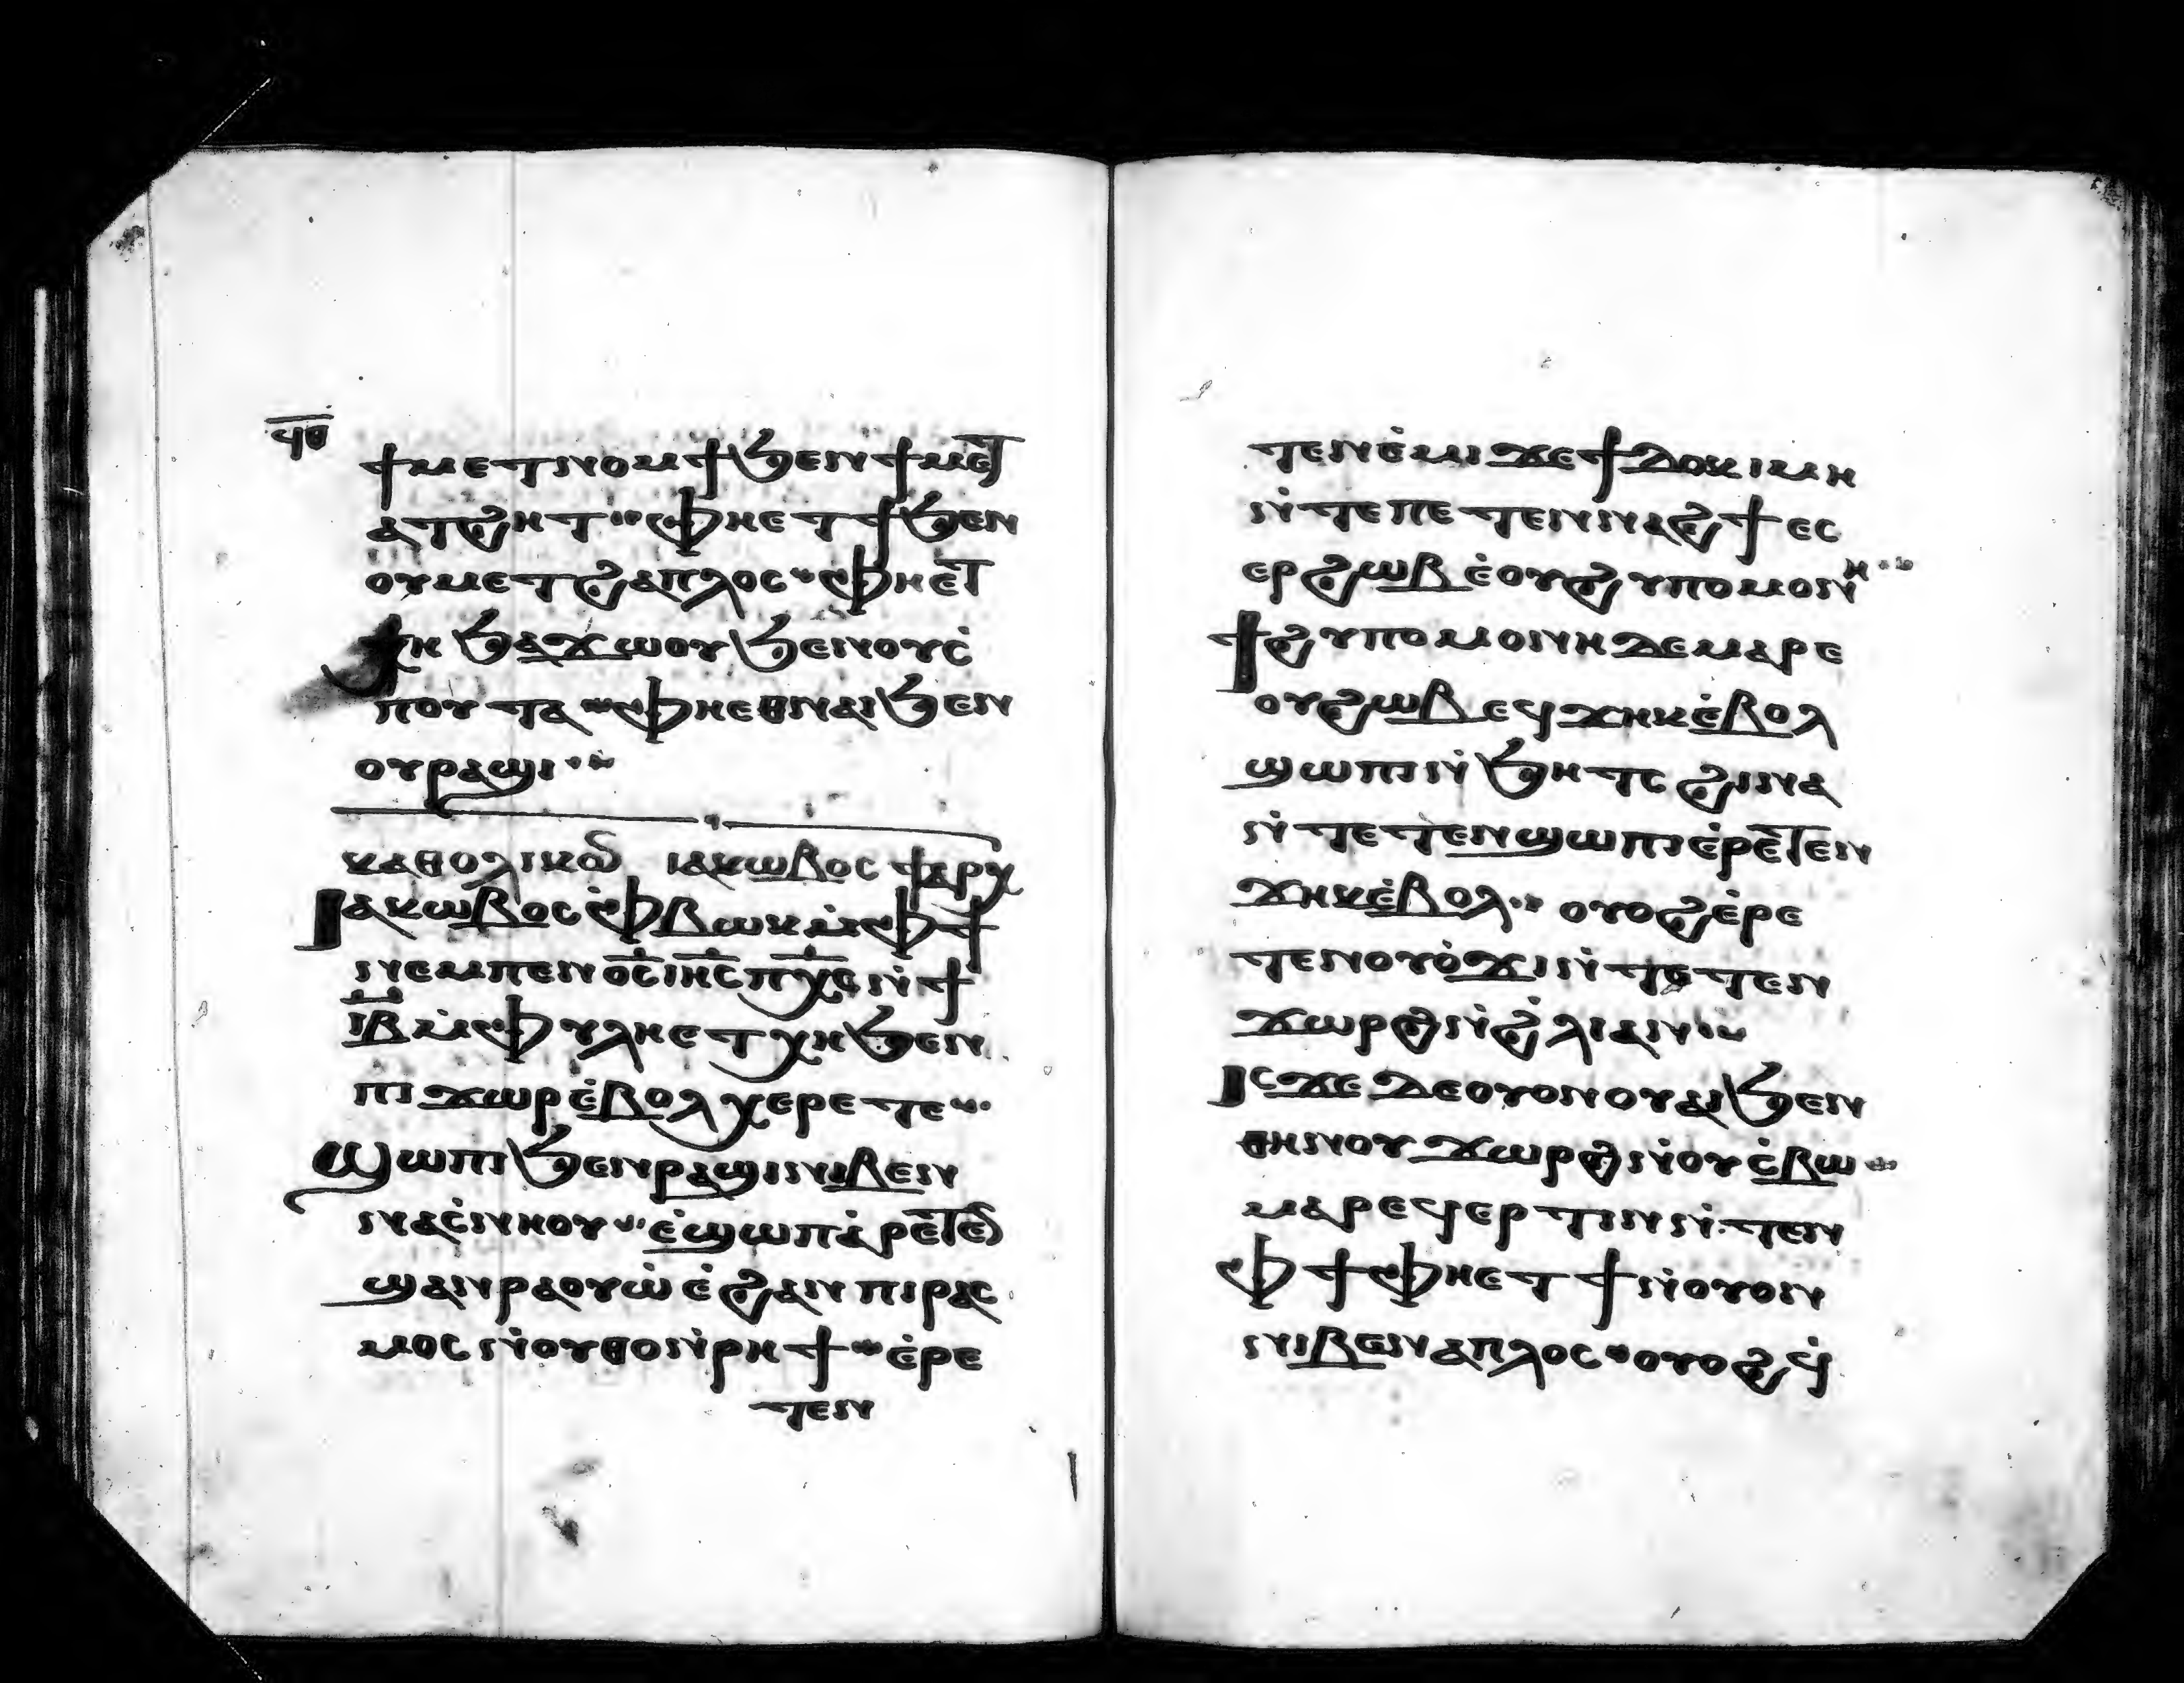 ϥⲑ
ϯⲙⲉⲧⲛⲟⲙϯϧⲉⲛϯⲙⲉⲧ
ⲁⲧϩⲏⲧ ⲫⲏⲉⲧϯϧⲉⲛ
ⲟⲩⲙⲉⲧϩⲁⲡⲗⲟⲥ ⲫⲏⲉⲧ
ⲭⲏ ϧⲁϫⲱⲟⲩϧⲉⲛⲟⲩⲥ̇
ⲡⲟⲩⲧⲁ ⲫⲏⲉⲑⲛⲁⲓϧⲉⲛ
ⲟⲩⲣⲁϣⲓ
ⲕⲁⲑⲟⲗⲓⲕⲟⲛ ⲓⲁⲕⲱⲃⲟⲥ ϯⲁⲣⲭ
ⲓⲁⲕⲱⲃⲟⲥⲫ̇ⲃⲱⲕⲙ̇ⲫϯ
ⲛⲉⲙⲡⲉⲛⲟ̅ⲥ̅ⲓⲏ̅ⲥ̅ⲡⲭ̅ⲥ̅ⲛ̇ϯ
ⲓ̅ⲃ̅ⲙ̇ⲫⲩⲗⲏⲉⲧⲭⲏϧⲉⲛ
ⲡⲓϫⲱⲣⲉ̇ⲃⲟⲗⲭⲉⲣⲉⲧⲉ
ϣⲱⲡⲓϧⲉⲛⲣⲁϣⲓⲛⲓⲃⲉⲛ
ⲛⲁⲥ̇ⲛⲏⲟⲩ ⲉ̇ϣⲱⲡⲁ̇ⲣⲉⲧⲉⲛ
ϣⲁⲛⲣⲁⲟⲩⲱ̇ⲉ̇ϩⲁⲛⲡⲓⲣⲁⲥ
ⲙⲟⲥⲛ̇ⲟⲩⲑⲟⲛ̇ⲣⲏϯ ⲉ̇ⲣⲉ
ⲧⲉⲛ
ⲧⲉⲛⲉ̇ⲙⲓϫⲉϯⲇⲟⲕⲓⲙⲏ
ⲛ̇ⲧⲉⲡⲉⲧⲉⲛⲛⲁϩϯⲉⲥ
ⲉⲣϩⲱⲃⲉ̇ⲟⲩϩⲩⲡⲟⲙⲟⲛⲏ
ϯϩⲩⲡⲟⲙⲟⲛⲏⲇⲉⲙⲁⲣⲉ
ⲟⲩϩⲱⲃⲉϥϫⲏⲕⲉ̇ⲃⲟⲗ
ϣⲱⲡⲓⲛ̇ϧⲏⲧⲥϩⲓⲛⲁ
ⲛ̇ⲧⲉⲧⲉⲛϣⲱⲡⲓⲉ̇ⲣⲉⲧⲉⲛ
ϫⲏⲕⲉ̇ⲃⲟⲗ ⲟⲩⲟϩⲉ̇ⲣⲉ
ⲧⲉⲛⲟⲩⲟ̇ϫⲓⲛ̇ⲧⲉⲧⲉⲛ
ϫⲱⲣϩⲛ̇ϩ̇ⲗⲓⲁⲛ
ⲓⲥϫⲉⲇⲉⲟⲩⲟⲛⲟⲩⲁⲓϧⲉⲛ
ⲑⲏⲛⲟⲩϫⲱⲣϩⲛ̇ⲟⲩⲥ̇ⲃⲱ
ⲙⲁⲣⲉϥⲉⲣⲧⲓⲛⲛ̇ⲧⲉⲛ
ⲫϯⲫⲏⲉⲧϯⲛ̇ⲟⲩⲟⲛ
ⲛⲓⲃⲉⲛⲁⲡⲗⲟⲥ ⲟⲩⲟϩϥ̇